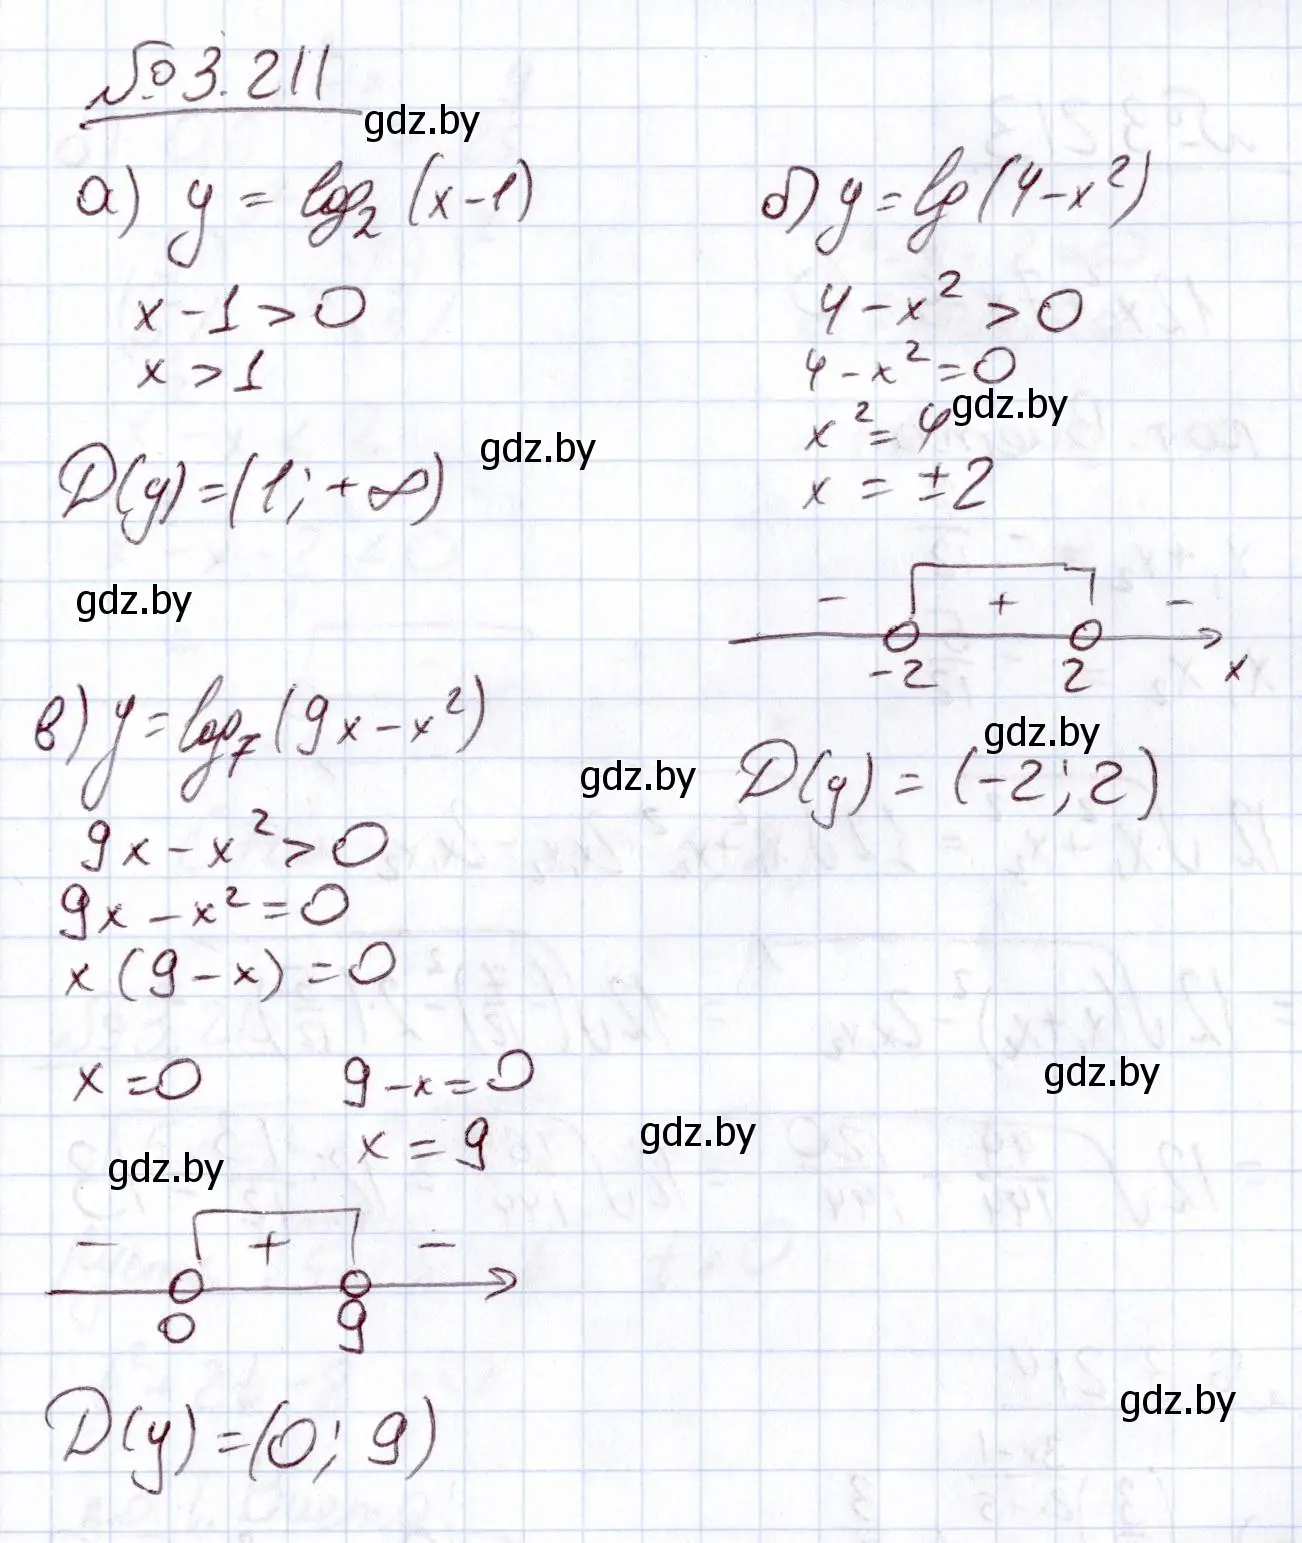 № 3.211
gdz.by
а) y = log₂ (x-1)
x - 1 > 0
x > 1
gdz.by
D(y) = (1; +∞)
gdz.by
б) y = lg (4-x²)
4 - x² > 0
4 - x² = 0
gdz.by
x² = 4
x = ±2
- + -
-2 2 x
gdz.by
D(y) = (-2; 2)
в) y = log₇ (9x - x²)
gdz.by
9x - x² > 0
9x - x² = 0
x (9 - x) = 0
x = 0 9 - x = 0
gdz.by
x = 9
gdz.by
gdz.by
- + -
0 9
D(y) = (0; 9)
gdz.by